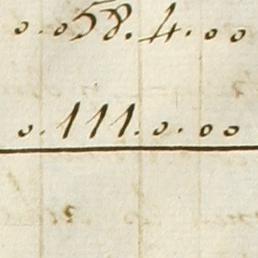 0.058.4.00
0.111.0.00